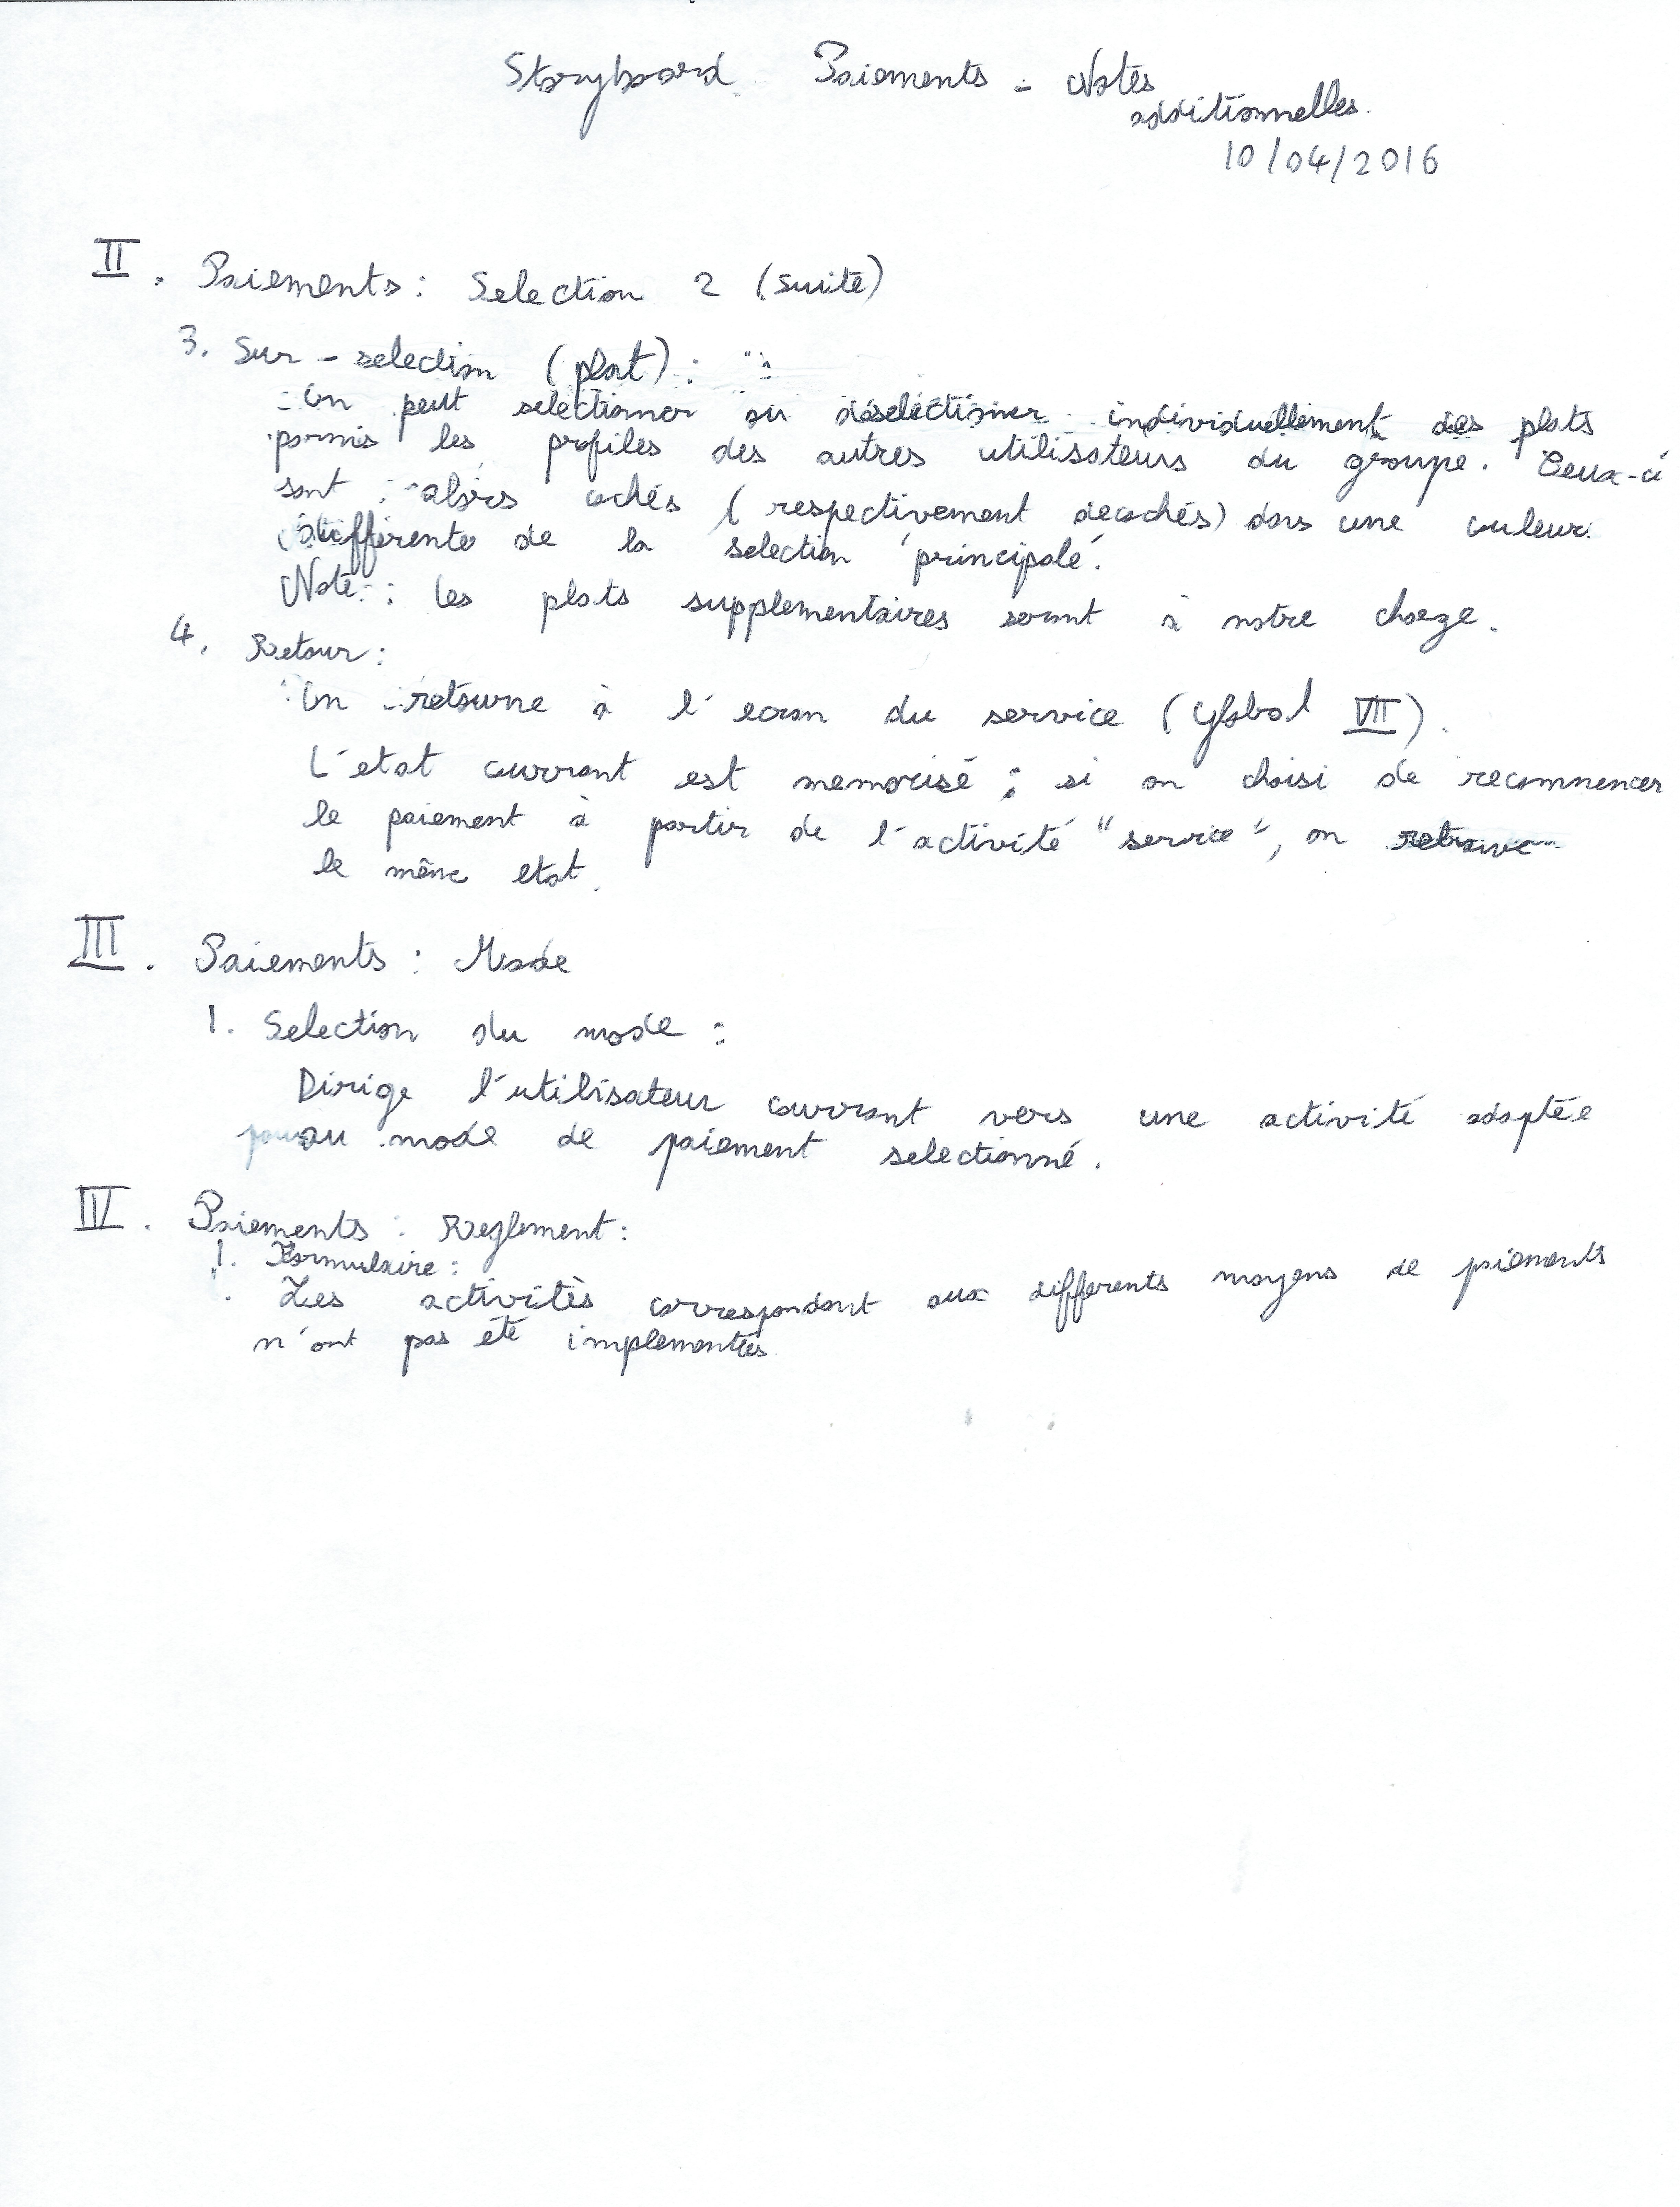 Storyboard Paiements - Notes
additionnelles.
10/04/2016
II. Paiements: Selection 2 (suite)
3. Sur-selection (plat):
On peut selectionner ou déselectionner individuellement des plats
parmis les profiles des autres utilisateurs du groupe. Ceux-ci
sont alors cochés (respectivement decochés) dans une couleur
différente de la selection principale.
Note: les plats supplementaires seront à notre charge.
4. Retour:
On retourne à l'ecran du service (Global VII).
L'etat courrant est memorisé; si on choisi de recommencer
le paiement à partir de l'activité "service", on retrouve
le même etat.
III. Paiements: Mode
1. Selection du mode:
Dirige l'utilisateur courrant vers une activité adaptée
au mode de paiement selectionné.
IV. Paiements: Reglement:
1. Formulaire:
Les activités correspondant aux differents moyens de paiements
n'ont pas été implementés.